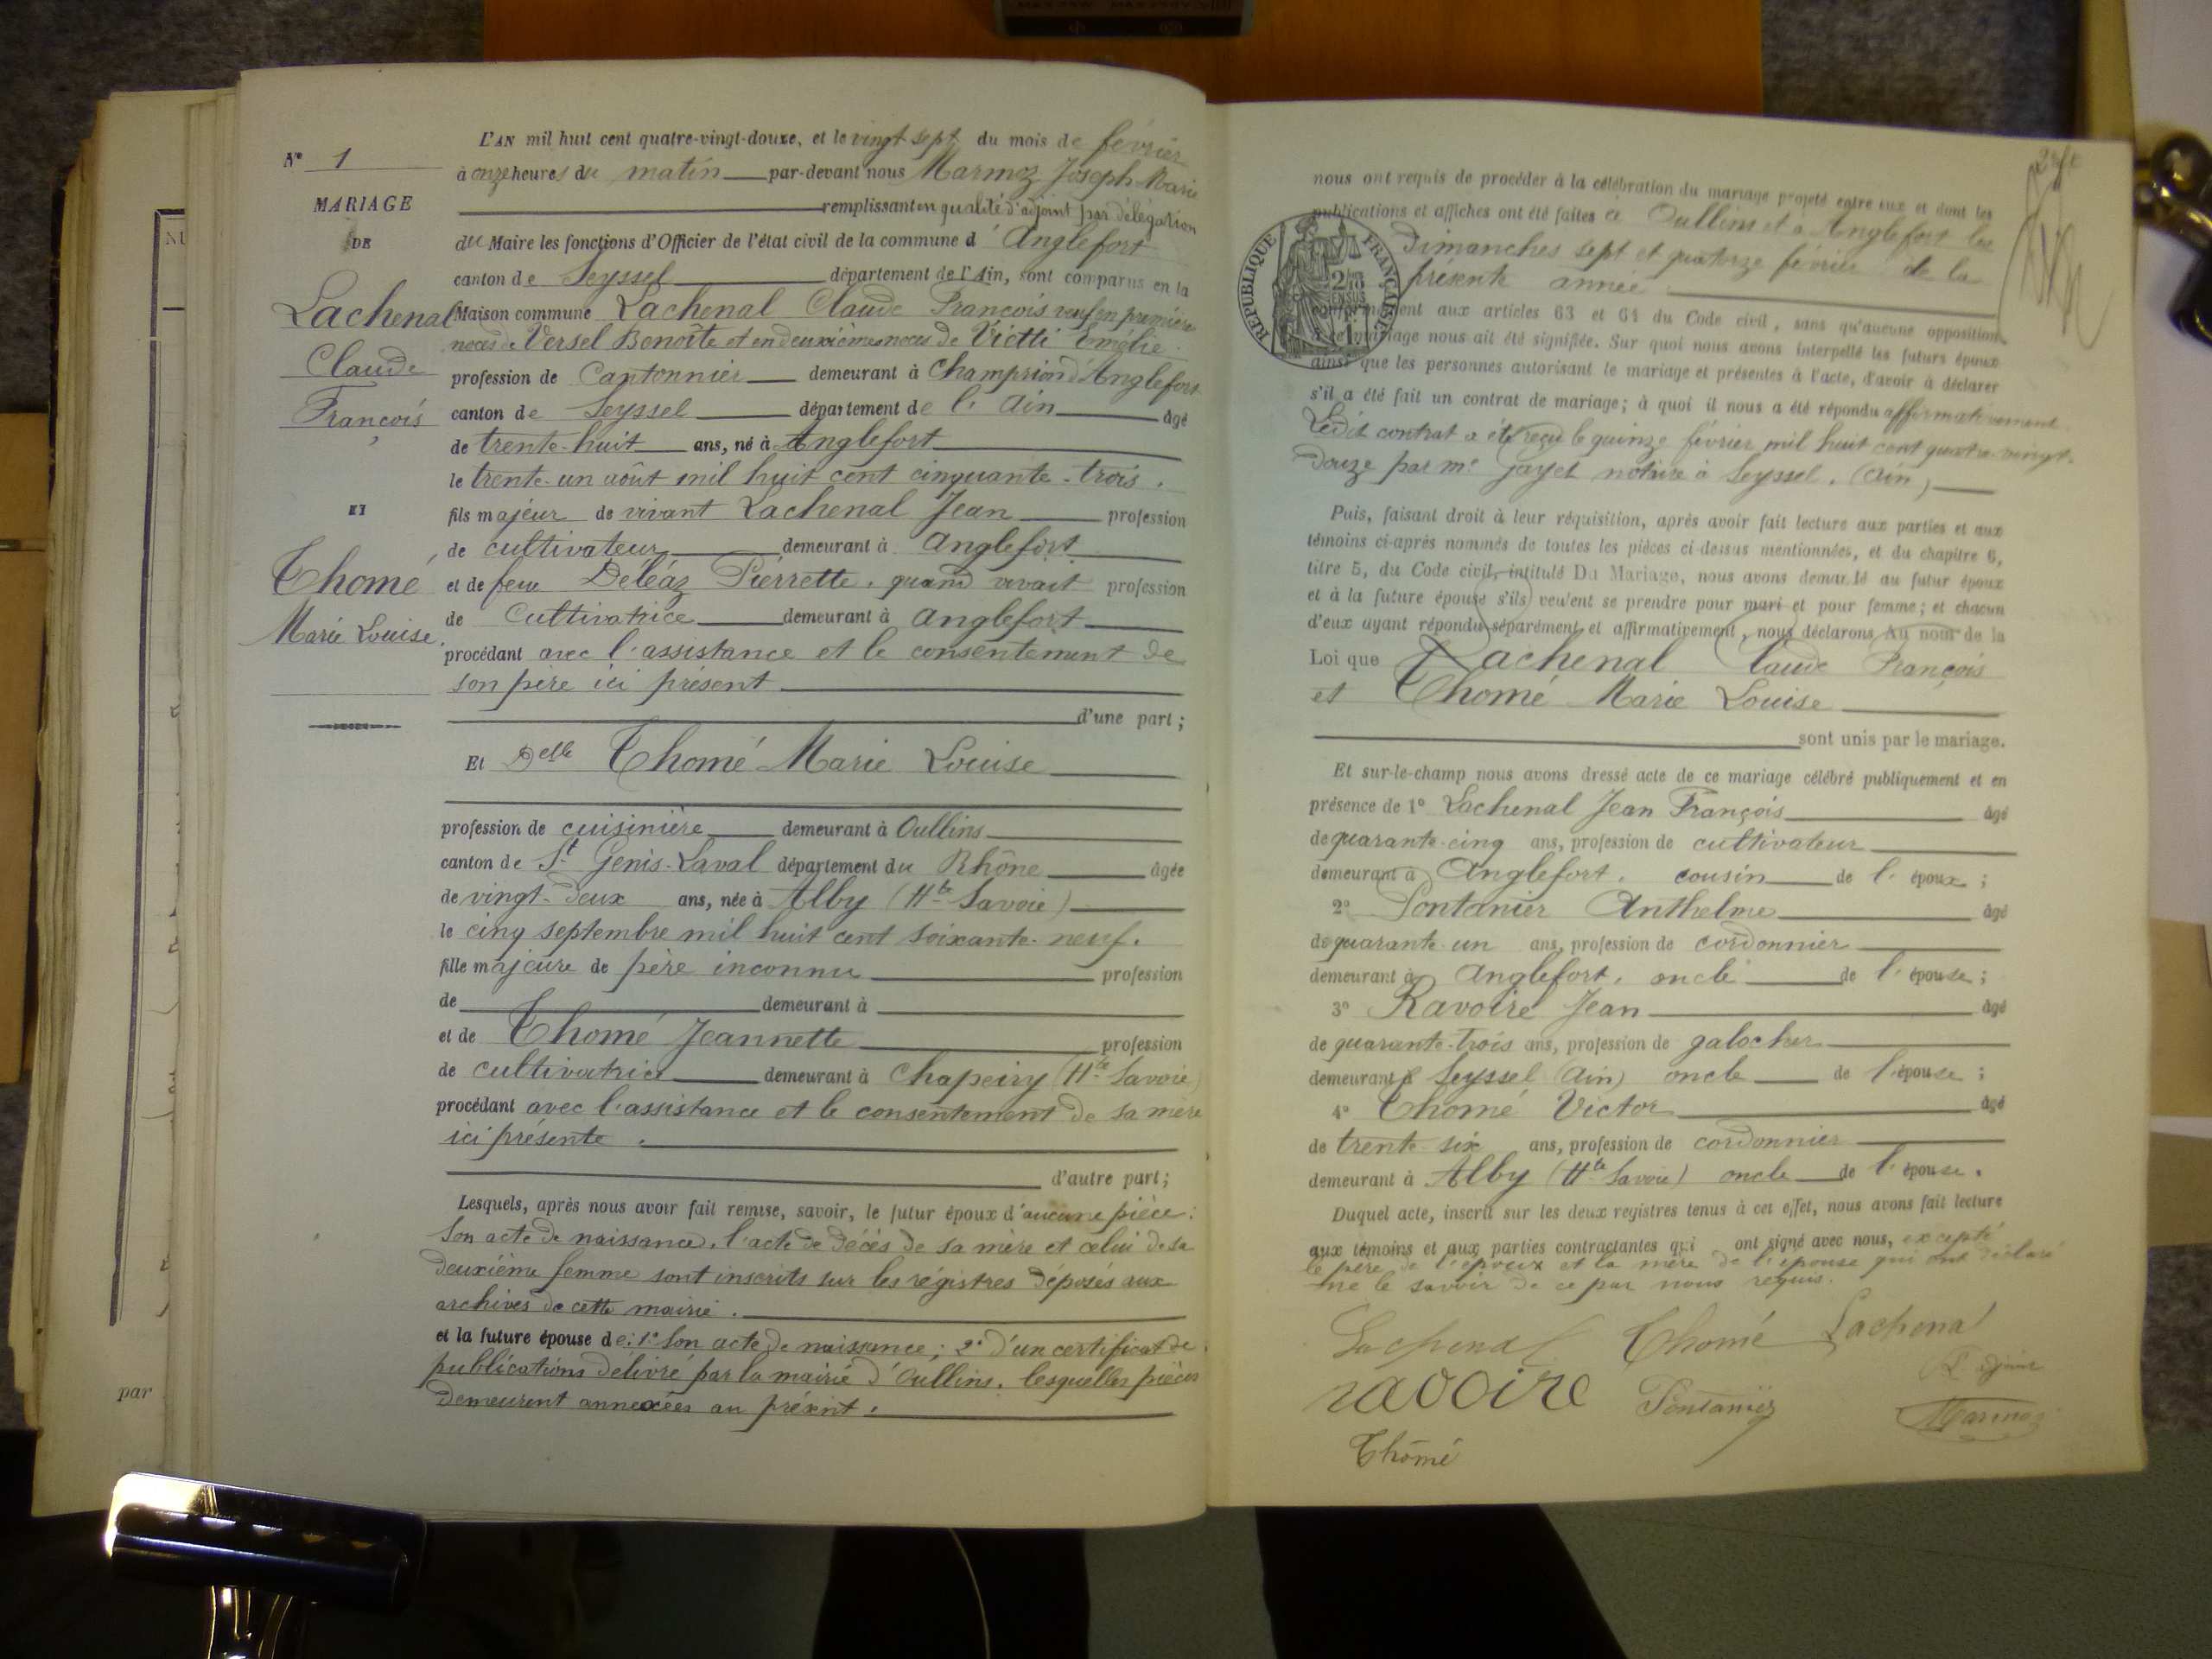 N° 1
MARIAGE
DE
Lachenal
Claude
François
ET
Thomé
Marie Louise.
L'AN mil huit cent quatre-vingt-douze, et le vingt sept du mois de février
à onze heures du matin par-devant nous Marmoz Joseph Marie
remplissant en qualité d'adjoint par délégation
du Maire les fonctions d'Officier de l'état civil de la commune d'Anglefort
canton de Seyssel département de l'Ain, sont comparus en la
Maison commune Lachenal Claude François veuf en première
noces de Versel Benoîte et en deuxièmes noces de Vietti
profession de Cantonnier demeurant à Champrion d'Anglefort
canton de Seyssel département de l'Ain âgé
de trente-huit ans, né à Anglefort
le trente-un août mil huit cent cinquante-trois.
fils majeur de vivant Lachenal Jean profession
de cultivateur demeurant à Anglefort
et de feue Déléaz Pierrette. quand vivait profession
de Cultivatrice demeurant à Anglefort
procédant avec l'assistance et le consentement de
son père ici présent
d'une part ;
Et Delle Thomé Marie Louise
profession de cuisinière demeurant à Oullins
canton de St Genis-Laval département du Rhône âgée
de vingt-deux ans, née à Alby (Hte Savoie)
le cinq septembre mil huit cent soixante-neuf.
fille majeure de père inconnu profession
de demeurant à
et de Thomé Jeannette profession
de cultivatrice demeurant à Chapeiry (Hte Savoie)
procédant avec l'assistance et le consentement de sa mère
ici présente.
d'autre part ;
Lesquels, après nous avoir fait remise, savoir, le futur époux d'aucune pièce :
Son acte de naissance, l'acte de décès de sa mère et celui de sa
deuxième femme sont inscrits sur les régistres déposés aux
archives de cette mairie.
et la future épouse de : 1° Son acte de naissance ; 2° d'un certificat de
publications délivré par la mairie d'Oullins. lesquelles pièces
demeurent annexées au présent.
par
nous ont requis de procéder à la célébration du mariage projeté entre eux et dont les
publications et affiches ont été faites à Oullins et à Anglefort les
Dimanches sept et quatorze février de la
présente année
RÉPUBLIQUE FRANÇAISE
conformément aux articles 63 et 64 du Code civil, sans qu'aucune opposition
à ce mariage nous ait été signifiée. Sur quoi nous avons interpellé les futurs époux
ainsi que les personnes autorisant le mariage et présentes à l'acte, d'avoir à déclarer
s'il a été fait un contrat de mariage ; à quoi il nous a été répondu affirmativement
Ledit contrat a été reçu le quinze février mil huit cent quatre-vingt-
douze par me Jayet notaire à Seyssel. (Ain)
Puis, faisant droit à leur réquisition, après avoir fait lecture aux parties et aux
témoins ci-après nommés de toutes les pièces ci-dessus mentionnées, et du chapitre 6,
titre 5, du Code civil, intitulé Du Mariage, nous avons demandé au futur époux
et à la future épouse s'ils veulent se prendre pour mari et pour femme ; et chacun
d'eux ayant répondu séparément et affirmativement, nous déclarons Au nom de la
Loi que Lachenal Claude François
et Thomé Marie Louise
sont unis par le mariage.
Et sur-le-champ nous avons dressé acte de ce mariage célébré publiquement et en
présence de 1° Lachenal Jean François âgé
de quarante-cinq ans, profession de cultivateur
demeurant à Anglefort. cousin de l'époux ;
2° Pontanier Anthelme âgé
de quarante-un ans, profession de cordonnier
demeurant à Anglefort. oncle de l'épouse ;
3° Ravoire Jean âgé
de quarante-trois ans, profession de galocher
demeurant à Seyssel (Ain) oncle de l'épouse ;
4° Thomé Victor âgé
de trente-six ans, profession de cordonnier
demeurant à Alby (Hte Savoie) oncle de l'épouse.
Duquel acte, inscrit sur les deux registres tenus à cet effet, nous avons fait lecture
aux témoins et aux parties contractantes qui ont signé avec nous, excepté
le père de l'époux et la mère de l'épouse qui ont déclaré
ne le savoir de ce par nous requis.
Lachenal Thomé Lachenal
L'adjoint
ravoire Pontanier Marmoz
Thomé